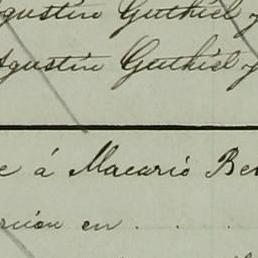 Agustin Guthiel y
Agustin Guthiel y
e á Macario Be
rcion en . . .